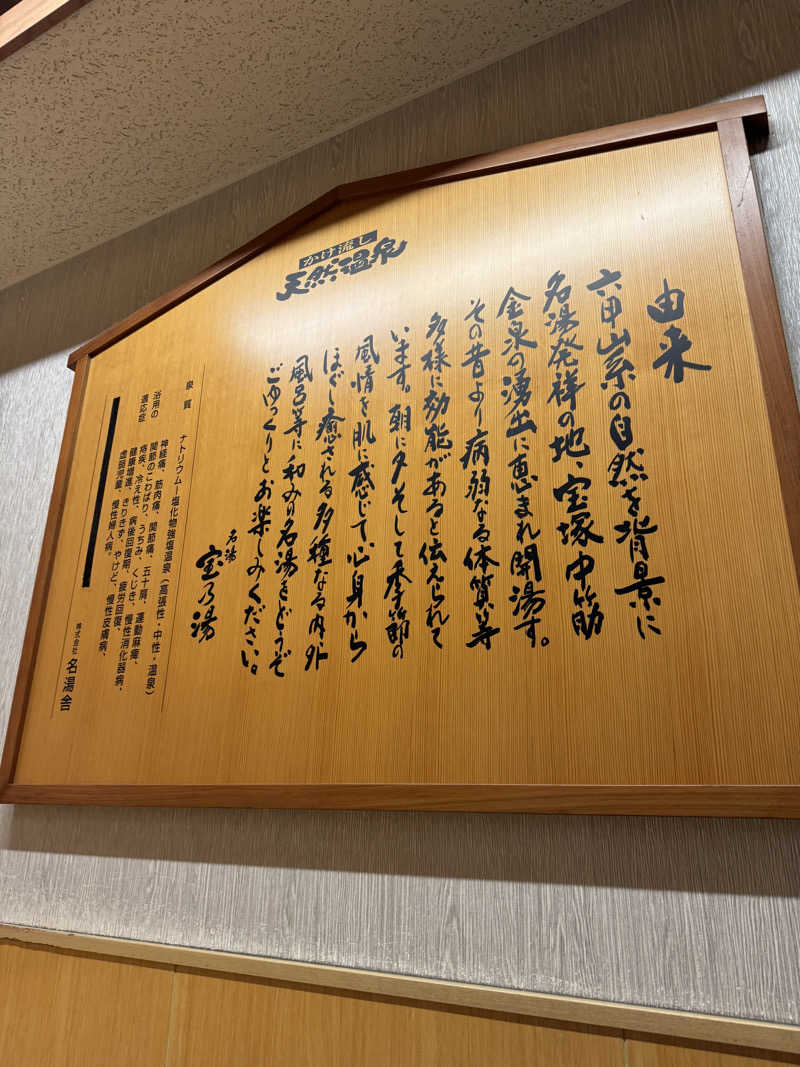 かけ流し
天然温泉
由来
六甲山系の自然を背景に
名湯発祥の地、宝塚中筋
金泉の湧出に恵まれ開湯す。
その昔より病弱なる体質等
多様に効能があると伝えられて
います。朝に夕そして季節の
風情を肌に感じて心身から
ほぐし癒される多種なる内・外
風呂等に和み名湯をどうぞ
ごゆっくりとお楽しみください。
名湯
宝乃湯
泉質 ナトリウム―塩化物強塩温泉(高張性・中性・温泉)
浴用の適応症 神経痛、筋肉痛、関節痛、五十肩、運動麻痺、
関節のこわばり、うちみ、くじき、慢性消化器病、
痔疾、冷え性、病後回復期、疲労回復、
健康増進、きりきず、やけど、慢性皮膚病、
虚弱児童、慢性婦人病。
株式会社 名湯舎